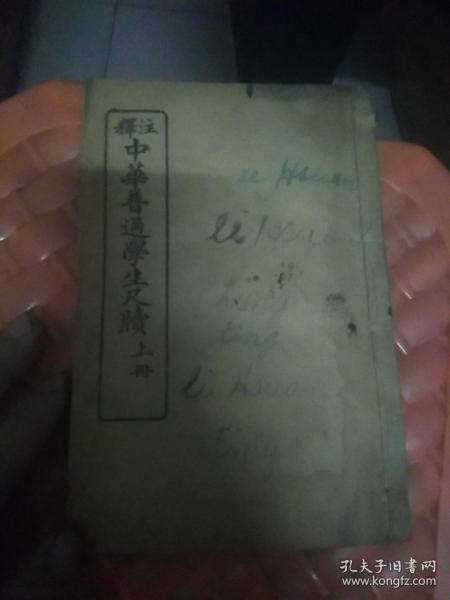 注釋中華普通學生尺牘上冊
li Hsuan
li Hsuan
ting
ting
li Hsuan
ting
孔夫子旧书网
www.kongfz.com